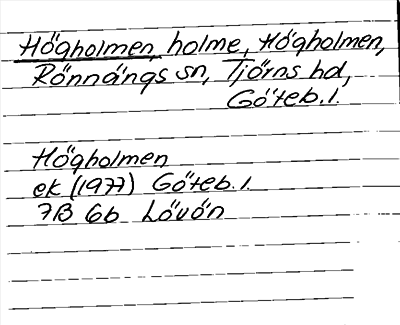 Högholmen, holme, Högholmen,
Rönnängs sn, Tjörns hd,
Göteb. l.
Högholmen
ek (1977) Göteb. l.
7B 6b Lövön